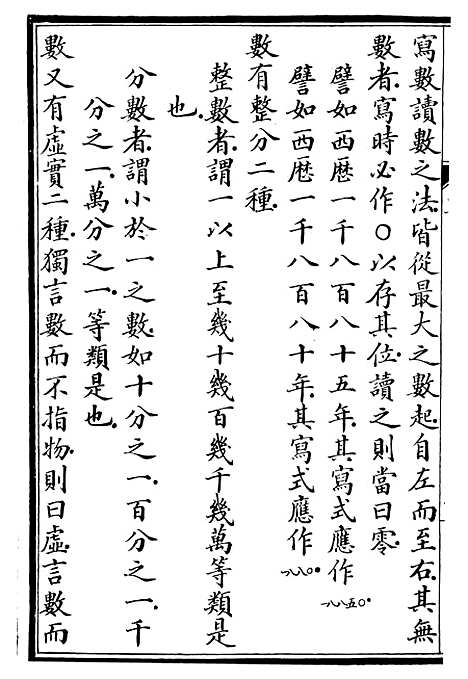 寫數讀數之法。皆從最大之數起。自左而至右。其無
數者。寫時必作○以存其位。讀之則當曰零。
譬如西歷一千八百八十五年。其寫式應作一八八五
譬如西歷一千八百八十年。其寫式應作一八八○
數有整分二種。
整數者。謂一以上至幾十幾百幾千幾萬等類是
也。
分數者。謂小於一之數。如十分之一。百分之一。千
分之一。萬分之一。等類是也。
數又有虛實二種。獨言數而不指物。則曰虛。言數而